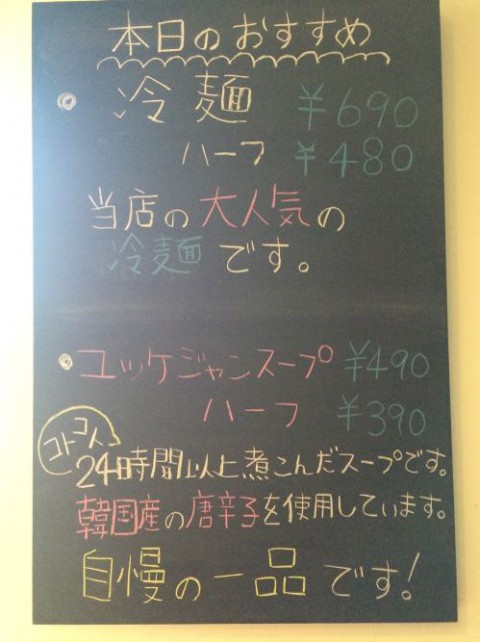 本日のおすすめ
冷麺 ¥690
ハーフ ¥480
当店の大人気の
冷麺です。
ユッケジャンスープ ¥490
ハーフ ¥390
コトコト
24時間以上煮こんだスープです。
韓国産の唐辛子を使用しています。
自慢の一品です!